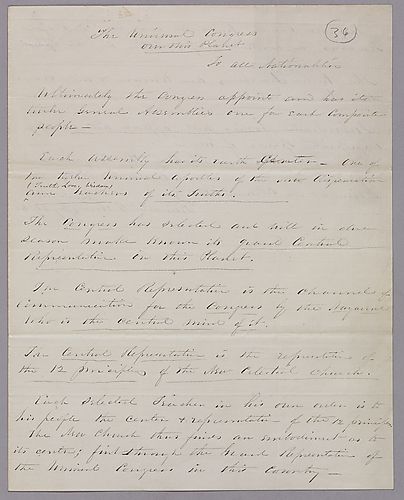 36
The Universal Congress
on this Planet
To all Nationalities
Ultimately the Congress appoints and has its
twelve General Assemblies one for each Composite
people —
Each Assembly has its earth Center — One of
the twelve Universal Apostles of the new Dispensation
(Truth, Love, Wisdom)
and Teachers of its Truths.
The Congress has selected and will in due
season make known its grand Central
Representative on this Planet.
The Central Representative is the channel of
communication for the Congress by the Nazarene
who is the central mind of it.
The Central Representative is the representative of
the 12 principles of the New Celestial Church.
Each Selected Teacher in his own order is to
his people the center & representative of the 12 principles
The New Church thus finds an embodiment as to
its centre; first through the Grand Representative of
the Universal Congress in this Country —